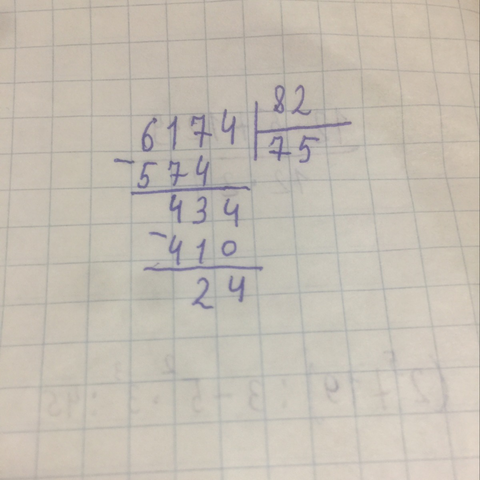 6174 82
- 574 75
434
- 410
24